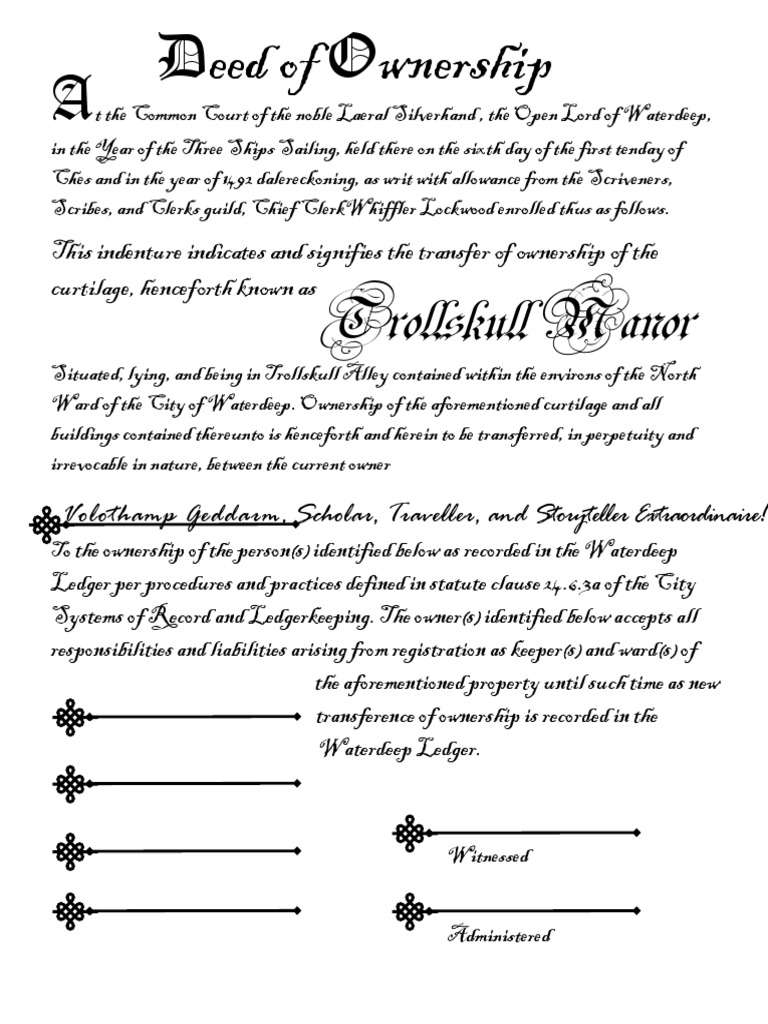 Deed of Ownership
At the Common Court of the noble Laeral Silverhand, the Open Lord of Waterdeep,
in the Year of the Three Ships Sailing, held there on the sixth day of the first tenday of
Ches and in the year of 1492 dalereckoning, as writ with allowance from the Scriveners,
Scribes, and Clerks guild, Chief Clerk Whiffler Lockwood enrolled thus as follows.
This indenture indicates and signifies the transfer of ownership of the
curtilage, henceforth known as
Trollskull Manor
Situated, lying, and being in Trollskull Alley contained within the environs of the North
Ward of the City of Waterdeep. Ownership of the aforementioned curtilage and all
buildings contained thereunto is henceforth and herein to be transferred, in perpetuity and
irrevocable in nature, between the current owner
Volothamp Geddarm, Scholar, Traveller, and Storyteller Extraordinaire!
To the ownership of the person(s) identified below as recorded in the Waterdeep
Ledger per procedures and practices defined in statute clause 24.6.3a of the City
Systems of Record and Ledgerkeeping. The owner(s) identified below accepts all
responsibilities and liabilities arising from registration as keeper(s) and ward(s) of
the aforementioned property until such time as new
transference of ownership is recorded in the
Waterdeep Ledger.
Witnessed
Administered